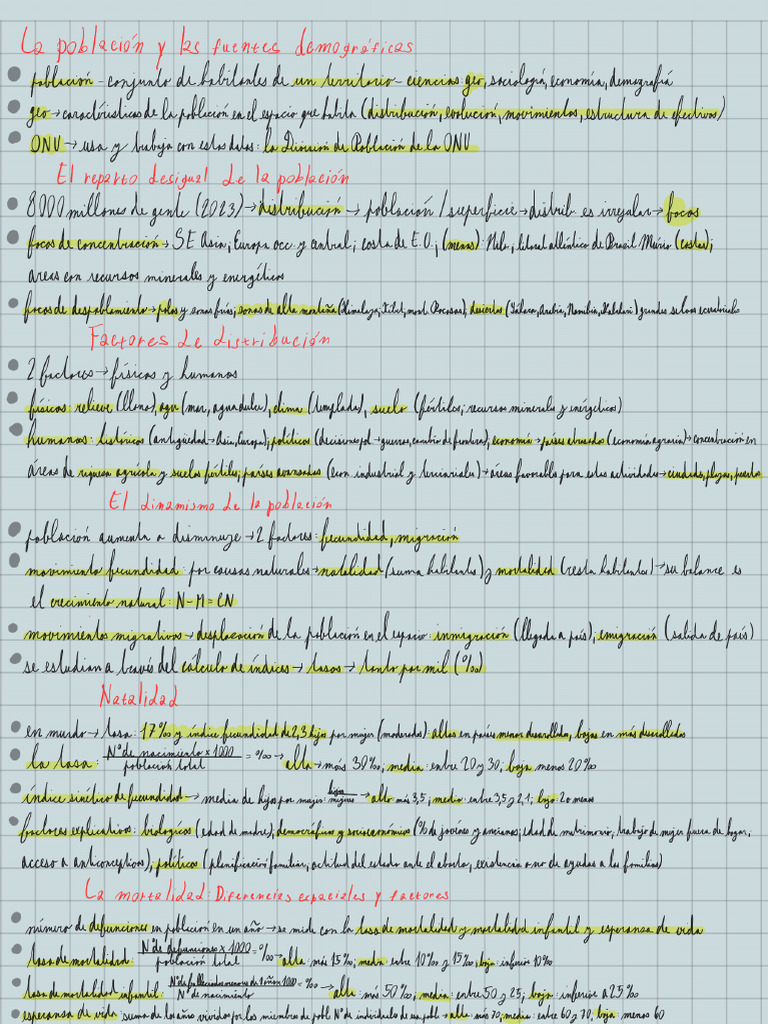 La población y las fuentes demográficas
población - conjunto de habitantes de un territorio - ciencias: geo, sociología, economía, demografía
geo → características de la población en el espacio que habita (distribución, evolución, movimientos, estructura de efectivos)
ONU → usa y trabaja con estos datos: la División de Población de la ONU
El reparto desigual de la población
8000 millones de gente (2023) → distribución → población / superficie → distrib. es irregular → focos
focos de concentración → SE Asia, Europa occ. y central, costa de E.O.; (menos): Nilo, litoral atlántico de Brasil (costas);
áreas con recursos minerales y energéticos
focos de despoblamiento → polos y zonas frías; zonas de alta montaña (Himalaya, Tíbet, mont. Rocosas), desiertos (Sáhara, Arabia, Namibia, Kalahari) grandes selvas ecuatoriales
Factores de distribución
2 factores → físicos y humanos
físicos: relieve (llano), agua (mar, agua dulce), clima (templado), suelo (fértiles, recursos minerales y energéticos)
humanos: históricos (antigüedad → Asia, Europa); políticos (decisiones pol. → guerras, cambio de frontera); economía → países atrasados (economía agraria) → concentración en
áreas de riqueza agrícola y suelos fértiles; países avanzados (econ. industrial y terciarias) → áreas favorables para estas actividades → ciudades, playas, puertos
El dinamismo de la población
población aumenta o disminuye → 2 factores: fecundidad, migración
movimiento fecundidad: por causas naturales → natalidad (suma habitantes) y mortalidad (resta habitantes) → su balance es
el crecimiento natural: N-M=CN
movimientos migrativos → desplazación de la población en el espacio: inmigración (llegada a país), emigración (salida de país)
se estudian a través del cálculo de índices → tasas → tanto por mil (‰)
Natalidad
en mundo → tasa: 17‰ y índice fecundidad de 2,3 hijos por mujer (moderados): altas en países menos desarollados, bajas en más desarollados
la tasa: Nº de nacimiento x 1000 / población total = ‰ → alta → más 30‰, media: entre 20 y 30, baja menos 20‰
índice sintético de fecundidad → media de hijos por mujer: hijos / mujeres → alto más 3,5; medio: entre 3,5 y 2,1; bajo: 2 o menos
factores explicativos: biológicos (edad de madre); demográficos y socioeconómicos (% de jóvenes y ancianos; edad de matrimonio; trabajo de mujer fuera de hogar;
acceso a anticonceptivos); políticos (planificación familiar, actitud del estado ante el aborto, existencia o no de ayudas a las familias)
La mortalidad: Diferencias espaciales y factores
número de defunciones en población en un año → se mide con la tasa de mortalidad y mortalidad infantil y esperanza de vida
tasa de mortalidad: Nº de defunciones x 1000 / población total = ‰ → alta: más 15‰; media entre 10‰ y 15‰, baja: inferior 10‰
tasa de mortalidad infantil: Nº de fallecidos menores de 1 año x 1000 / Nº de nacimiento = ‰ → alta: más 50‰, media: entre 50 y 25; baja: inferior a 25‰
esperanza de vida: suma de los años vividos por los miembros de pobl. Nº de individuos de una pobl → alta: más 70; media: entre 60 y 70, baja: menos 60